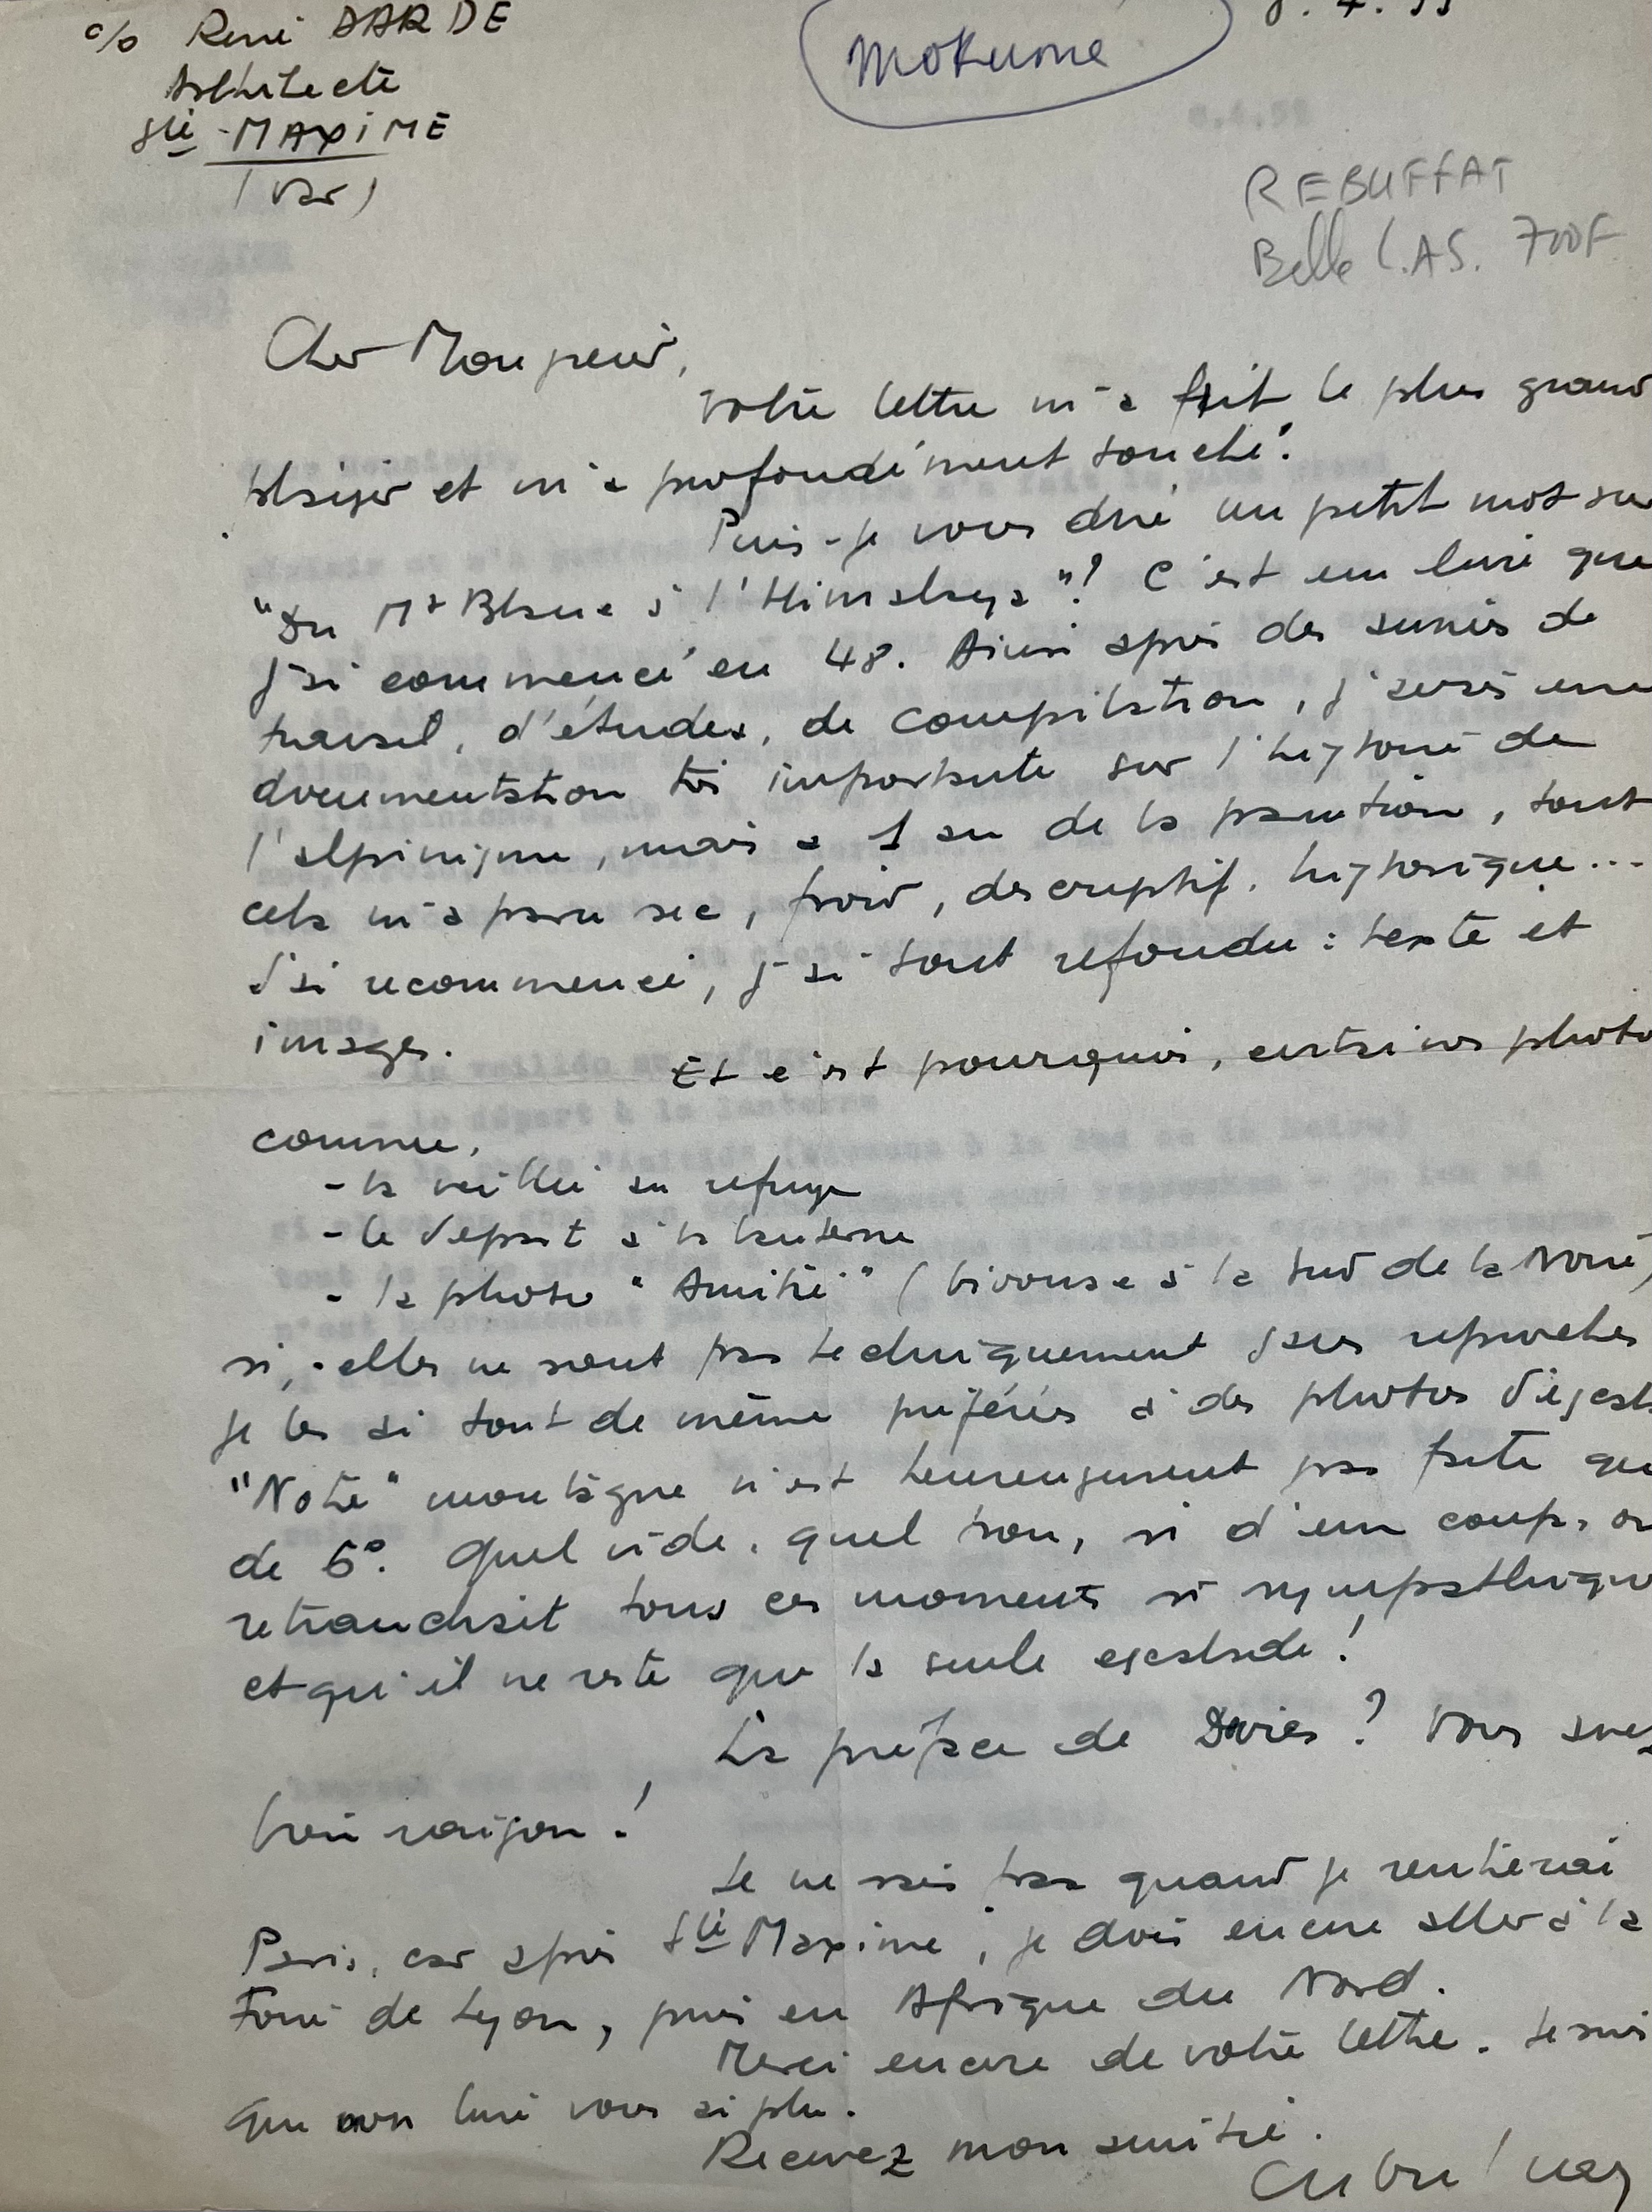 c/o René DARDE
Architecte
Ste-MAXIME
(Var)
REBUFFAT
Belle L.A.S. 700F
Cher Monsieur,
Votre lettre m'a fait le plus grand
plaisir et m'a profondément touché.
Puis-je vous dire un petit mot sur
"Du Mt Blanc à l'Himalaya"? C'est un livre que
j'ai commencé en 48. Ainsi après des années de
travail, d'études, de compilation, j'avais une
documentation très importante sur l'histoire de
l'alpinisme, mais à 1 an de la parution, tout
cela m'a paru sec, froid, descriptif, historique...
J'ai recommencé, j'ai tout refondu : texte et
images.
Et c'est pourquoi, certaines photo
comme,
- la veillée au refuge
- le départ à la lanterne
- la photo "Amitié" (bivouac à la sud de la Noire)
si, elles ne sont pas techniquement sans reproches
je les ai tout de même préférées à des photos d'escal
"Notre" montagne n'est heureusement pas faite que
de 6°. Quel vide, quel trou, si d'un coup, on
retranchait tous ces moments si sympathique
et qu'il ne reste que la seule escalade!
La préface de ? Vous avez
bien raison!
Je ne sais pas quand je rentrerai
Paris, car après Ste Maxime, je dois encore aller à la
Foire de Lyon, puis en Afrique du Nord.
Merci encore de votre lettre. Je suis
que mon livre vous ai plu.
Recevez mon amitié.